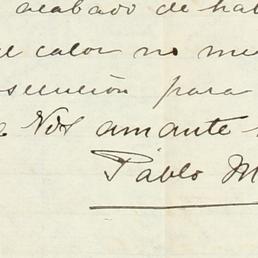 acabado de hal
el calor no me
secución para
Vos amante
Pablo M